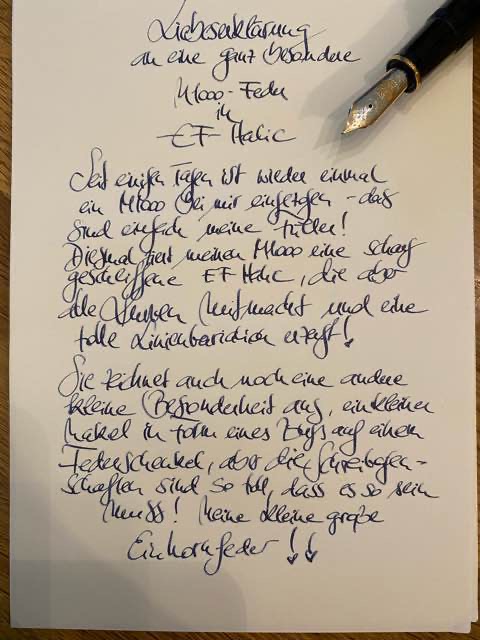 Liebeserklärung
an eine ganz besondere
M1000-Feder
in
EF Italic
Seit einigen Tagen ist wieder einmal
ein M1000 bei mir eingezogen - das
sind einfach meine Füller!
Diesmal ziert meinen M1000 eine scharf
geschliffene EF Italic, die aber
alle Kurven mitmacht und eine
tolle Linienvariation erzeugt!
Sie zeichnet auch noch eine andere
kleine Besonderheit aus, ein kleiner
Makel in Form eines Bugs auf einem
Federschenkel, aber die Schreibeigen-
schaften sind so toll, dass es so sein
muss! Meine kleine große
Einhornfeder!!